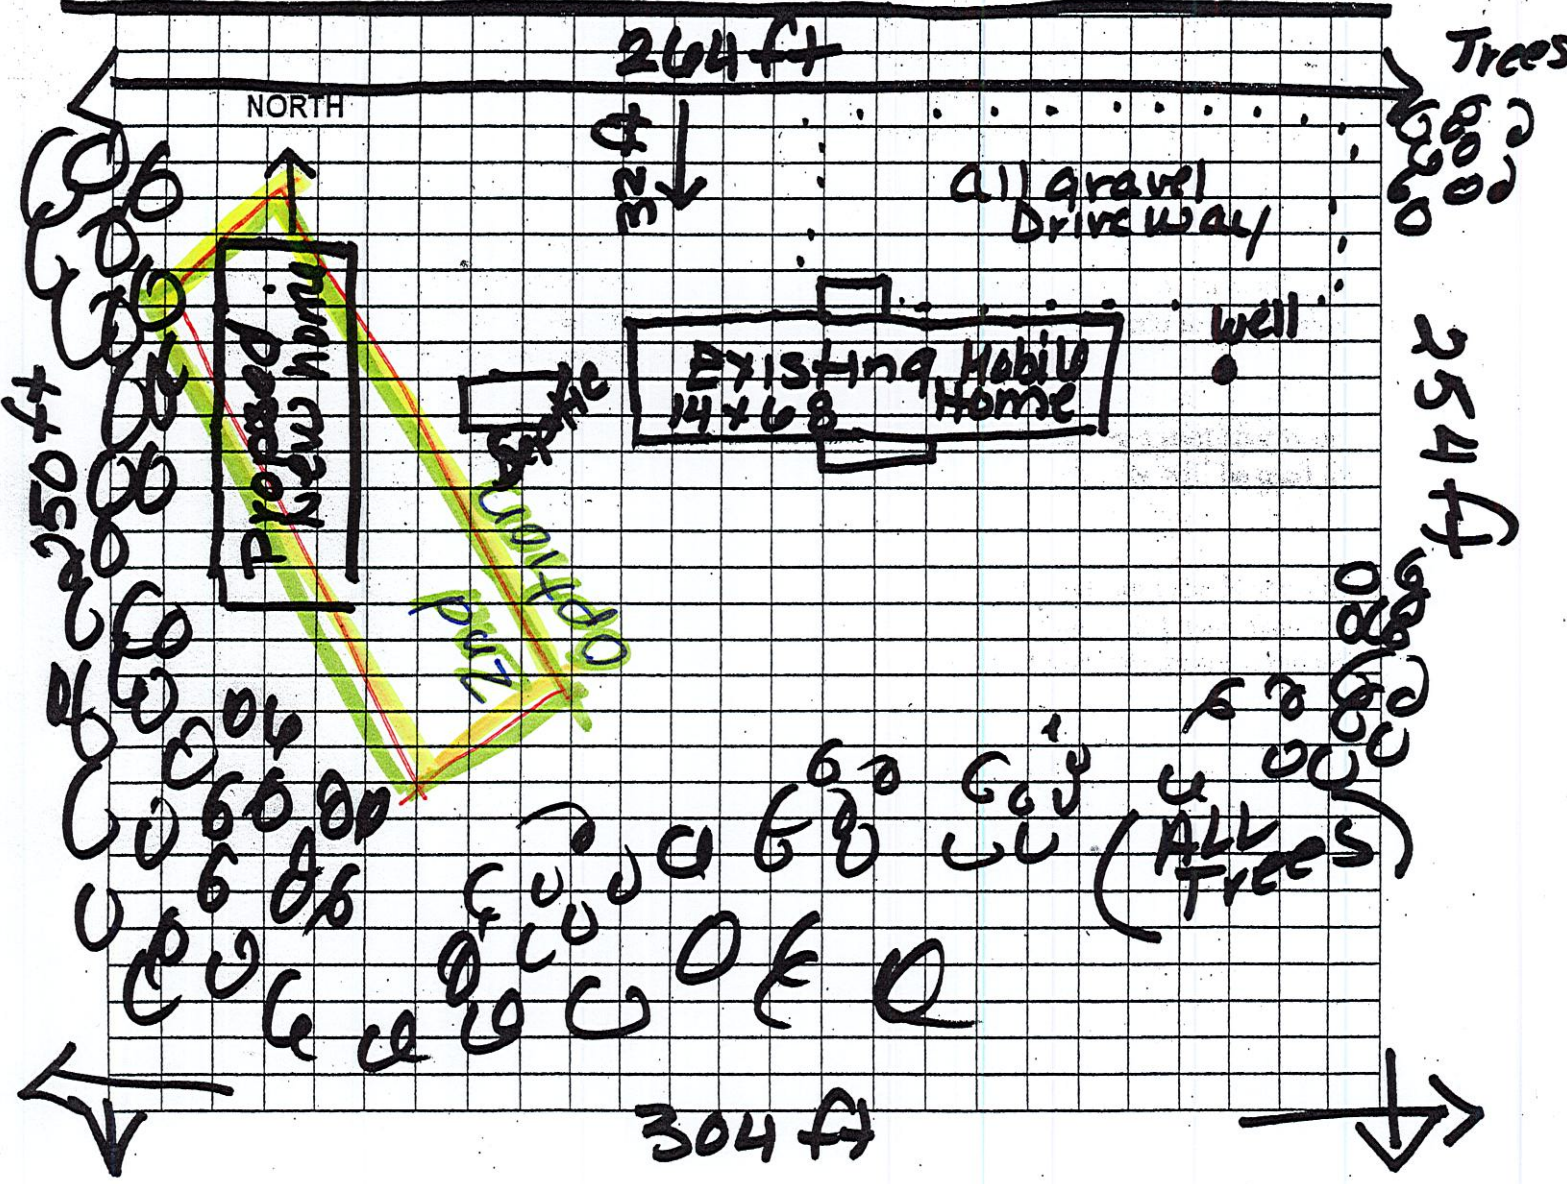 264 ft
Trees
NORTH
32 ft
All gravel
Driveway
well
Existing Mobile
14 x 68 Home
Septic
Proposed
New Home
2nd
OPTION
250 ft
254 ft
(ALL
Trees)
304 ft